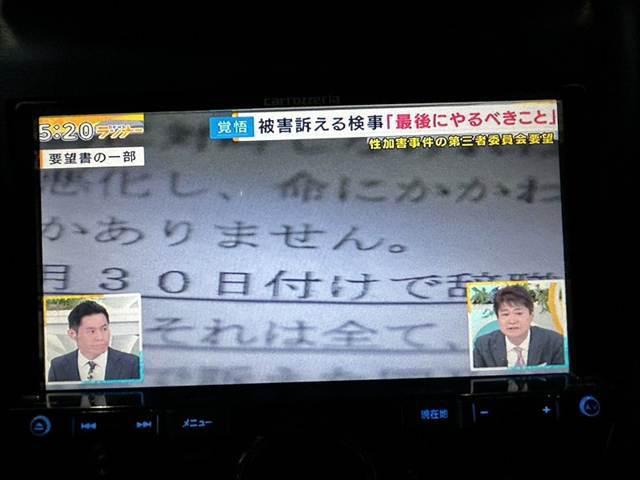 carrozzeria
5:20
ランナー
覚悟 被害訴える検事「最後にやるべきこと」
性加害事件の第三者委員会要望
要望書の一部
悪化し、命にかかわ
かありません。
月30日付けで辞職
それは全て、
メニュー
現在地
− +